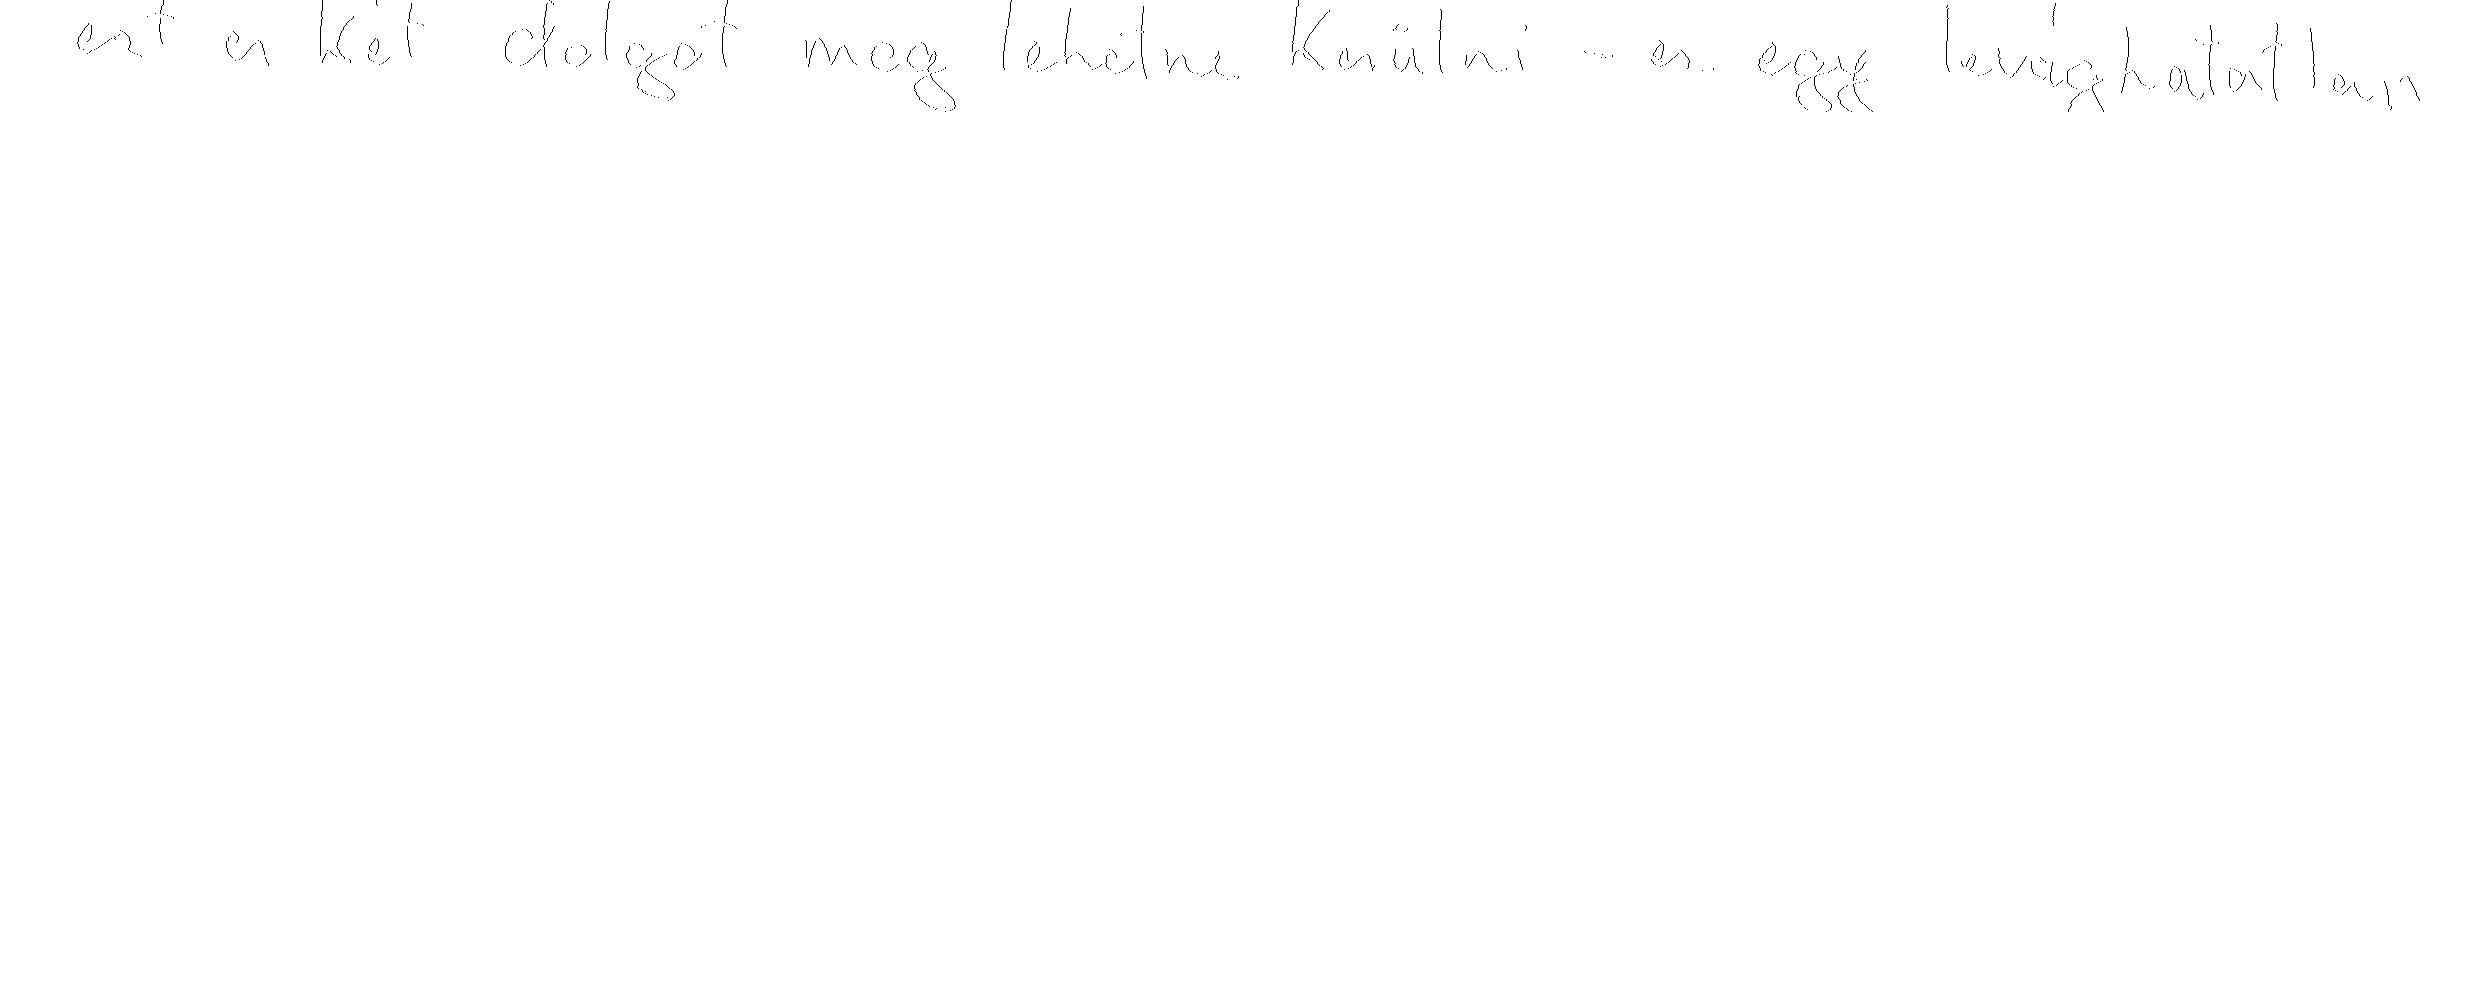 ezt a két dolgot meg lehetne kerülni - ez egy levághatatlan